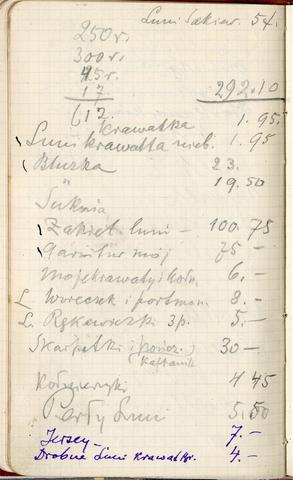 Luni Sakiew. 54.
250 r.
300 r.
45 r.
17
612.
292.10
Krawatka 1.95.
Luni krawatka nieb. 1.95
Bluzka 23.
19.50
Suknia
Żakiet Luni - 100.75
Garnitur mój 75 -
Moje krawaty i koln. 6.-
L Woreczek i portmon. 8.-
L. Rękawiczki 3 p. 5.-
Skarpetki i pończ. 30 -
(kaftanik)
Kołnierzyki 4 45
Perły Luni 5.50
Jersey - 7.-
Drobne Luni Krawatki. 4.-